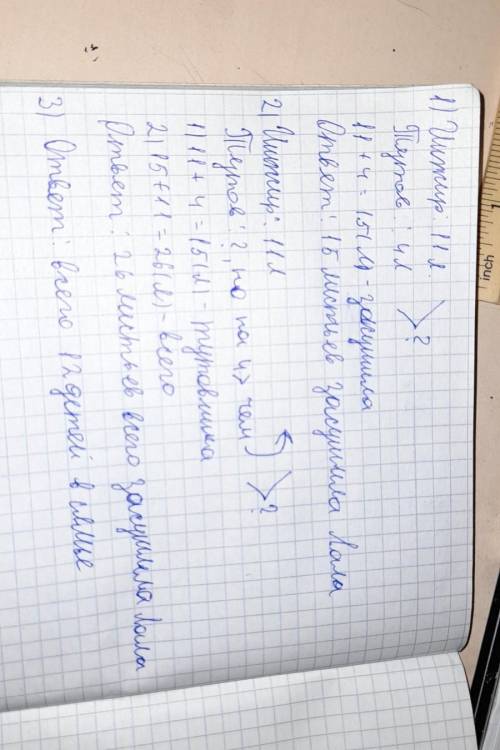 1) Инжир: 11 л.
Тутов: 4 л >?
11 + 4 = 15 (л) - засушила
Ответ: 15 листьев засушила Лала
2) Инжир: 11 л
Тутов: ?, но на 4> чем >?
1) 11 + 4 = 15 (л) - тутовника
2) 15 + 11 = 26 (л) - всего
Ответ: 26 листьев всего засушила Лала
3) Ответ: всего 12 детей в семье
inch